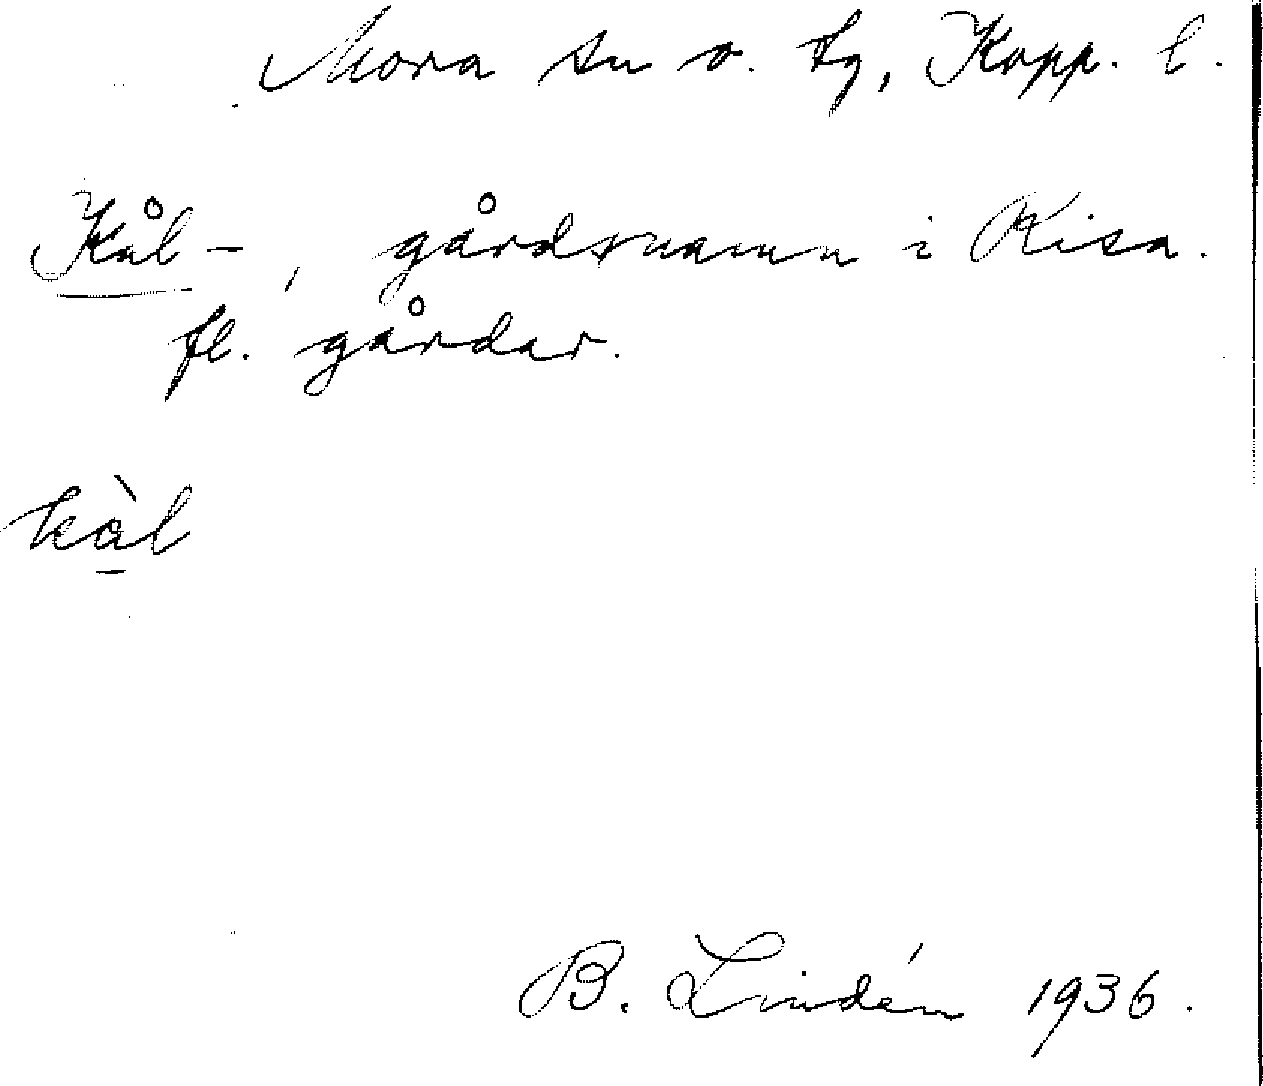 Mora sn o. tg, Kopp. l.
Kål-, gårdsnamn i Risa.
fl. gårdar.
kàl
B. Lindén 1936.